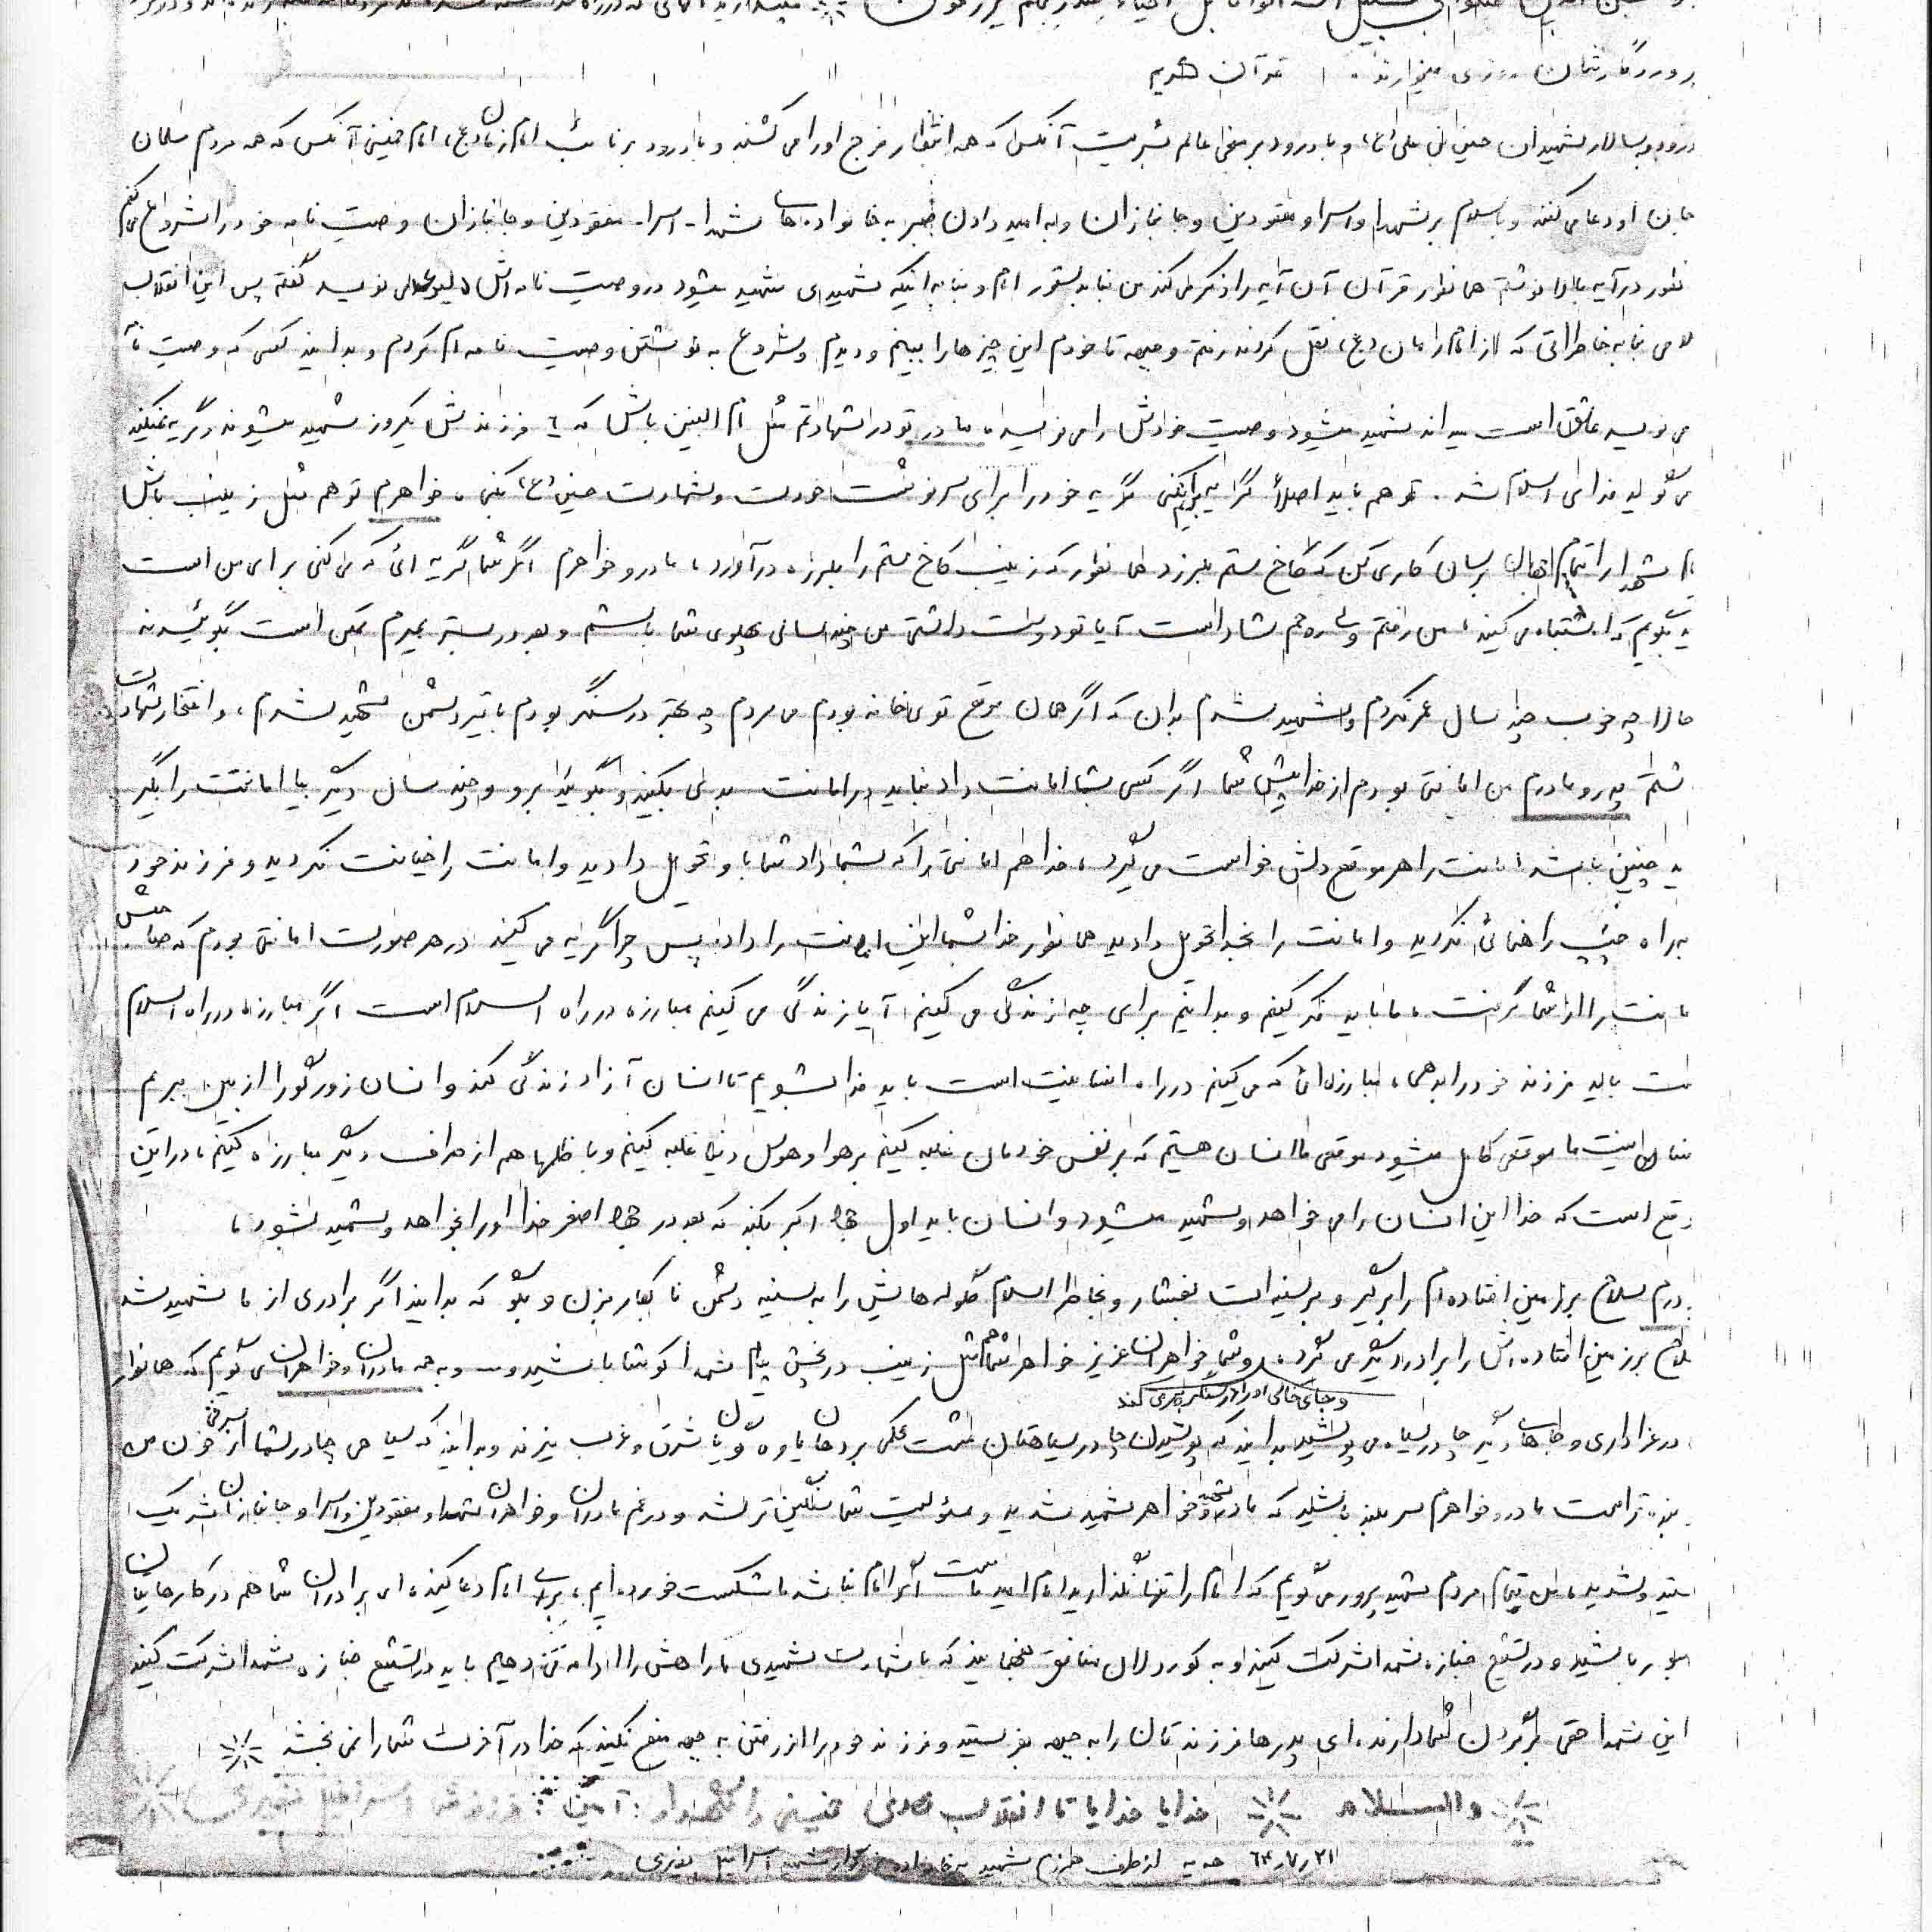 پروردگارشان روزی میخوارند . قرآن کریم
درود بر سالار شهیدان حسین ابن علی (ع)، و با درود بر منجی عالم بشریت آنکس که همه انتظار فرج او را می کشند و با درود بر نائب امام زمان (عج)، امام خمینی آنکس که همه مردم مسلمان
جان او دعا می کنند و با سلام بر شهدا و اسرا و مفقودین و جانبازان و به امید دادن صبر به خانواده های شهدا - اسرا - مفقودین و جانبازان وصیت نامه خود را شروع می کنم
نطور در آیه بالا نوشتم همانطور قرآن آن آیه را ذکر می کند من بنا به دستور امام و بنا به اینکه شهیدی شهید میشود در وصیت نامه اش می نویسد گفته پس این انقلاب
لامی بنا به خاطراتی که از امام زمان (عج) نقل کردند رفتم جبهه تا خودم این چیزها را ببینم و دیدم و شروع به نوشتن وصیت نامه ام کردم و بدانید کسی که وصیت نا
می نویسد عاشق است میداند شهید میشود وصیت خودش را می نویسد، مادر تو در شهادتم مثل ام البنین باش که ٦ فرزندش یکروز شهید میشوند و گریه نمیکند
می گوید فدای اسلام شد . تو هم باید اصلاً گریه برایم نکنی گریه خود را برای سرنوشت خودت و شهادت حسین (ع) بکنی ، خواهرم تو هم مثل زینب باش
شهدا را تمام جهان برسان کاری کن که کاخ ستم بلرزد همانطور که زینب کاخ ستم را بلرزه درآورد ، مادر و خواهرم اگر شما گریه ائی که می کنی برای من است
بگویم که اشتباه می کنید ، من رفتم ولی روحم شاد است آیا تو دوست داشتی من چند سالی پهلوی شما باشم و بعد در بستر بمیرم ممکن است بگوئید نه
حالا چه خوب چند سال عمر نکردم و شهید شدم بدان که اگر همان موقع توی خانه بودم می مردم چه بهتر در سنگر بودم با تیر دشمن شهید شدم ، و افتخار شهادت
شتم پدر و مادرم من امانتی بودم از خدا پیش شما اگر کسی بشما امانت داد نباید در امانت بدی بکنید و بگوئید برو و چند سال دیگر بیا امانتت را بگیر
ید چنین باشد امانت را هر موقع دلش خواست می گیرد ، خدا هم امانتی را که بشما داد شما باو تحویل دادید و امانت را خیانت نکردید و فرزند خود
به راه چپ راهنمائی نکردید و امانت را بخدا تحویل دادید همانطور خدا بشما این امانت را داد، پس چرا گریه می کنید در هر صورت امانتی بودم که صاحبش
مانت را از شما گرفت ، ما باید فکر کنیم و بدانیم برای چه زندگی می کنیم ، آیا زندگی می کنیم مبارزه در راه اسلام است اگر مبارزه در راه اسلام
ت باید فرزند خود را بدهی ، مبارزه ائی که می کنیم در راه انسانیت است باید فدا بشویم تا انسان آزاد زندگی کند و انسان زورگو را از بین ببریم
انسانیت ما موقعی کامل میشود موقعی ما انسان هستیم که بر نفس خودمان غلبه کنیم بر هوا و هوس دنیا غلبه کنیم و با ظلمها هم از طرف دیگر مبارزه کنیم ، در این
وقع است که خدا این انسان را می خواهد و شهید میشود و انسان باید اول جهاد اکبر بکند که بعد در جهاد اصغر خدا او را بخواهد و شهید بشود ،
درم سلاح بر زمین افتاده ام را برگیر و بر سینه ات بفشار و بخاطر اسلام گلوله هایش را به سینه دشمن نابکار بزن و بگو که بدانید اگر برادری از ما شهید شد
لاح بر زمین افتاده اش را برادر دیگر می گیرد و شما خواهران عزیز خواهر شما هم مثل زینب در پخش پیام شهدا کوشا باشید و به همه مادران و خواهران می گویم که همانطور
و جای خالی او را در سنگر پر می کند
در عزاداری و جاهای دیگر چادر سیاه می پوشید بدانید که پوشیدن چادر سیاهتان مشت محکمی بر دهان یاوه گویان شرق و غرب میزند و بدانید که سیاهی چادر شما از سرخی خون من
نده تر است مادر و خواهرم سر بلند باشید که مادر شهید و خواهر شهید شدید و مسئولیت شما سنگین تر شد و در غم مادران و خواهران شهدا و مفقودین و اسرا و جانبازان شریک
ستید و شدید ، من بتمام مردم شهید پرور می گویم که امام را تنها نگذارید امام امید ماست اگر امام نباشد ما شکست خورده ایم ، برای امام دعا کنید ، ای برادران شما هم در کارهایتان
صبور باشید و در تشیع جنازه شهدا شرکت کنید و به کوردلان منافق بفهمانید که با شهادت شهیدی ما راهش را ادامه می دهیم باید در تشیع جنازه شهدا شرکت کنید
این شهدا حقی بر گردن شما دارند . ای پدرها فرزندتان را به جبهه بفرستید و فرزند خود را از رفتن به جبهه منع نکنید که خدا در آخرت شما را نمی بخشد
والسلام خدایا خدایا تا انقلاب مهدی خمینی را نگهدار : آمین
۶۴/۷/۲۱ هدیه از طرف همرزم شهید به خانواده بزرگوار شهید اسرافیل